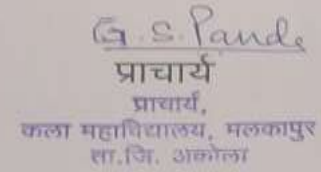 G. S. Pande
प्राचार्य
प्राचार्य,
कला महाविद्यालय, मलकापुर
ता.जि. अकोला